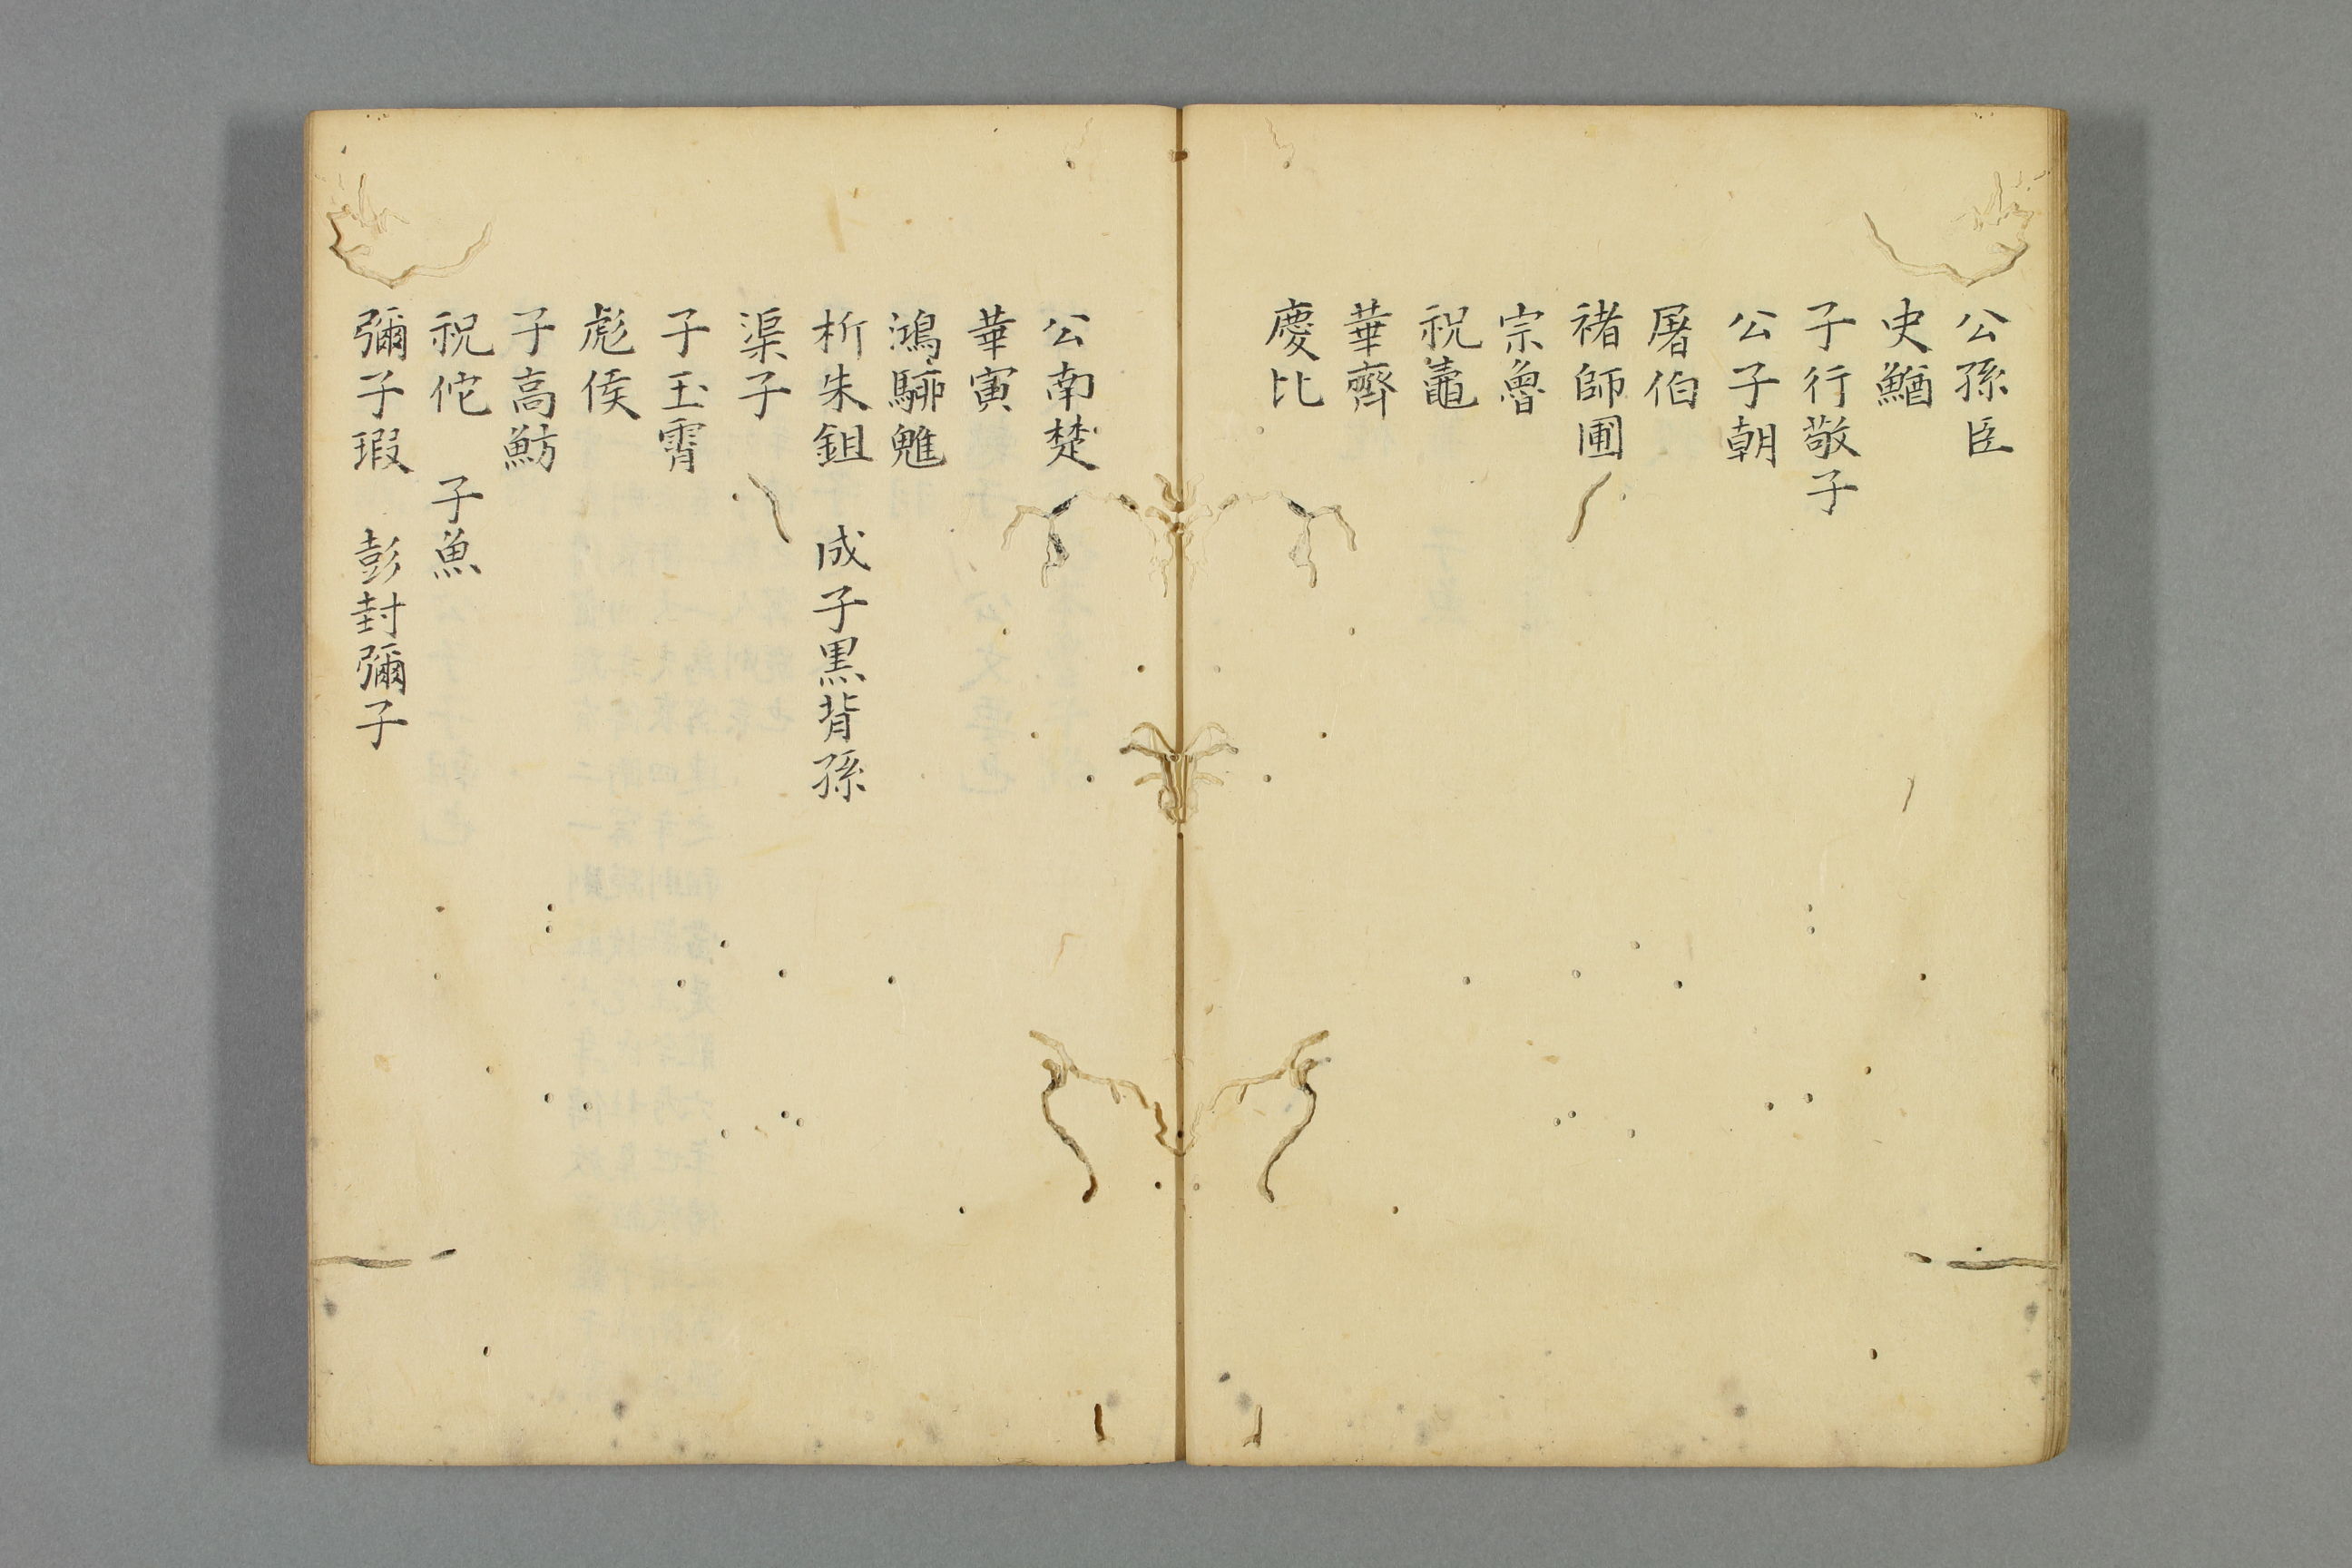 公孫臣
史鰌
子行敬子
公子朝
屠伯
褚師圃
宗魯
祝鼃
華齊
慶比
公南楚
華寅
鴻駵魋
析朱鉏　成子黒背孫
渠子
子玉霄
彪傒
子高魴
祝佗　子魚
彌子瑕　彭封彌子